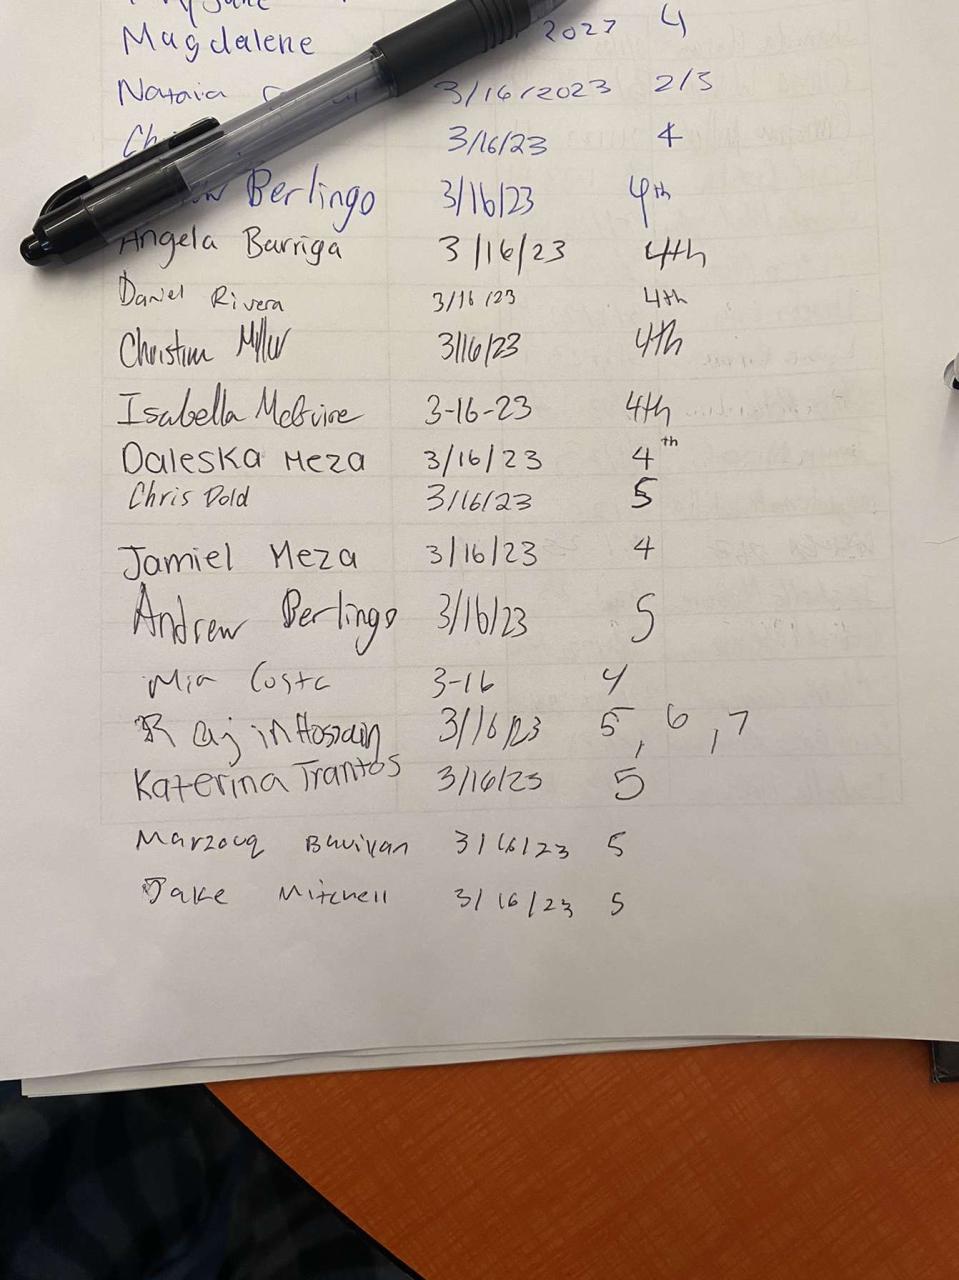 Magdalene 4
Nataia 3/16/2023 2/3
3/16/23 4
Berlingo 3/16/23 4th
Angela Barriga 3/16/23 4th
Daniel Rivera 3/16/23 4th
Christina Miller 3/16/23 4th
Isabella McGuire 3-16-23 4th
Daleska Meza 3/16/23 4th
Chris Dold 3/16/23 5
Jamiel Meza 3/16/23 4
Andrew Berlingo 3/16/23 5
Mia Costa 3-16 4
Rajin Hossain 3/16/23 5, 6, 7
Katerina Trantos 3/16/23 5
Marzouq 3/16/23 5
Jake Mitchell 3/16/23 5